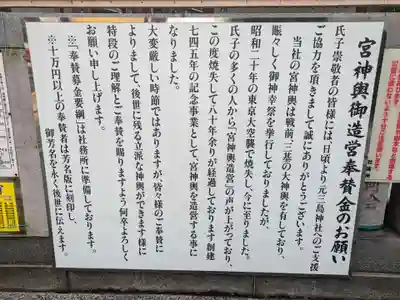 宮神輿御造営奉賛金のお願い
氏子崇敬者の皆様には、日頃より元三島神社へのご支援
ご協力を頂きまして誠にありがとうございます。
当社の宮神輿は戦前、三基の大神輿を有しており、
賑々しく御神幸祭を挙行しておりましたが、
昭和二十年の東京大空襲で焼失し、今に至りました。
氏子の多くの人から『宮神輿造営』の声が上がっており、
この度焼失して八十年余りが経過しております創建
七四五年の記念事業として宮神輿を造営する事に
なりました。
大変厳しい時節ではありますが、皆様のご奉賛に
よりまして、後世に残る立派な神輿ができます様に
特段のご理解とご奉賛を賜りますよう何卒よろしく
お願い申し上げます。
※『奉賛募金要綱』は社務所に準備しております。
※十万円以上の奉賛者は芳名版に刻印し、
御芳名を永く後世に伝えます。